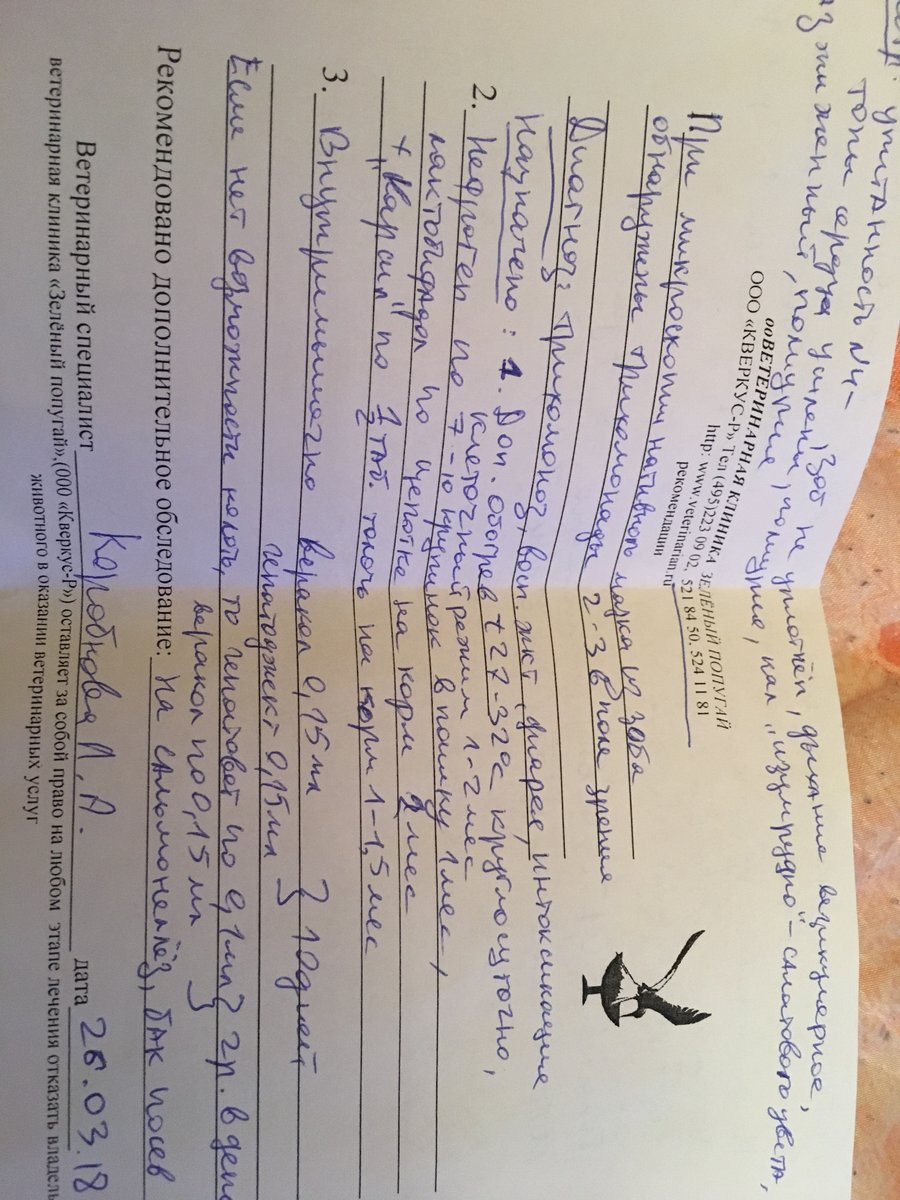 упитанность N4-
тоны сердца усилены, Зоб не утолщён, дыхание везикулярное,
разжиженный, полиурия, помёт, кал "изумрудно"-салатового цвета,
ооВЕТЕРИНАРНАЯ КЛИНИКА ЗЕЛЁНЫЙ ПОПУГАЙ
ООО «КВЕРКУС-Р» Тел (495)223 09 02, 521 84 50. 524 11 81
http: www.veterinarian.ru
рекомендации
При микроскопии нативного мазка из зоба
обнаружены трихомонады 2-3 в поле зрения
Диагноз: трихомоноз, восп. жкт, диарея, интоксикация
Назначено: 1. Доп. обогрев +27-32°С круглосуточно,
клеточный режим 1-2 мес
2. Нефроген по 7-10 крупинок в поилку 1 мес,
лактобифадол по щепотке на корм 2 мес
+ "Карсил" по 1/2 таб. толочь на корм 1-1,5 мес
3. Внутримышечно веракол 0,15 мл } 10 дней
гепатоджект 0,15 мл
Если нет возможности колоть, то гепатовет по 0,1 мл 2 р. в день
веракол по 0,15 мл
Рекомендовано дополнительное обследование: на сальмонеллёз, бак посев
Ветеринарный специалист Коробнова Л. А. дата 26.03.18
ветеринарная клиника «Зелёный попугай»,(ООО «Кверкус-Р») оставляет за собой право на любом этапе лечения отказать владель
животного в оказании ветеринарных услуг